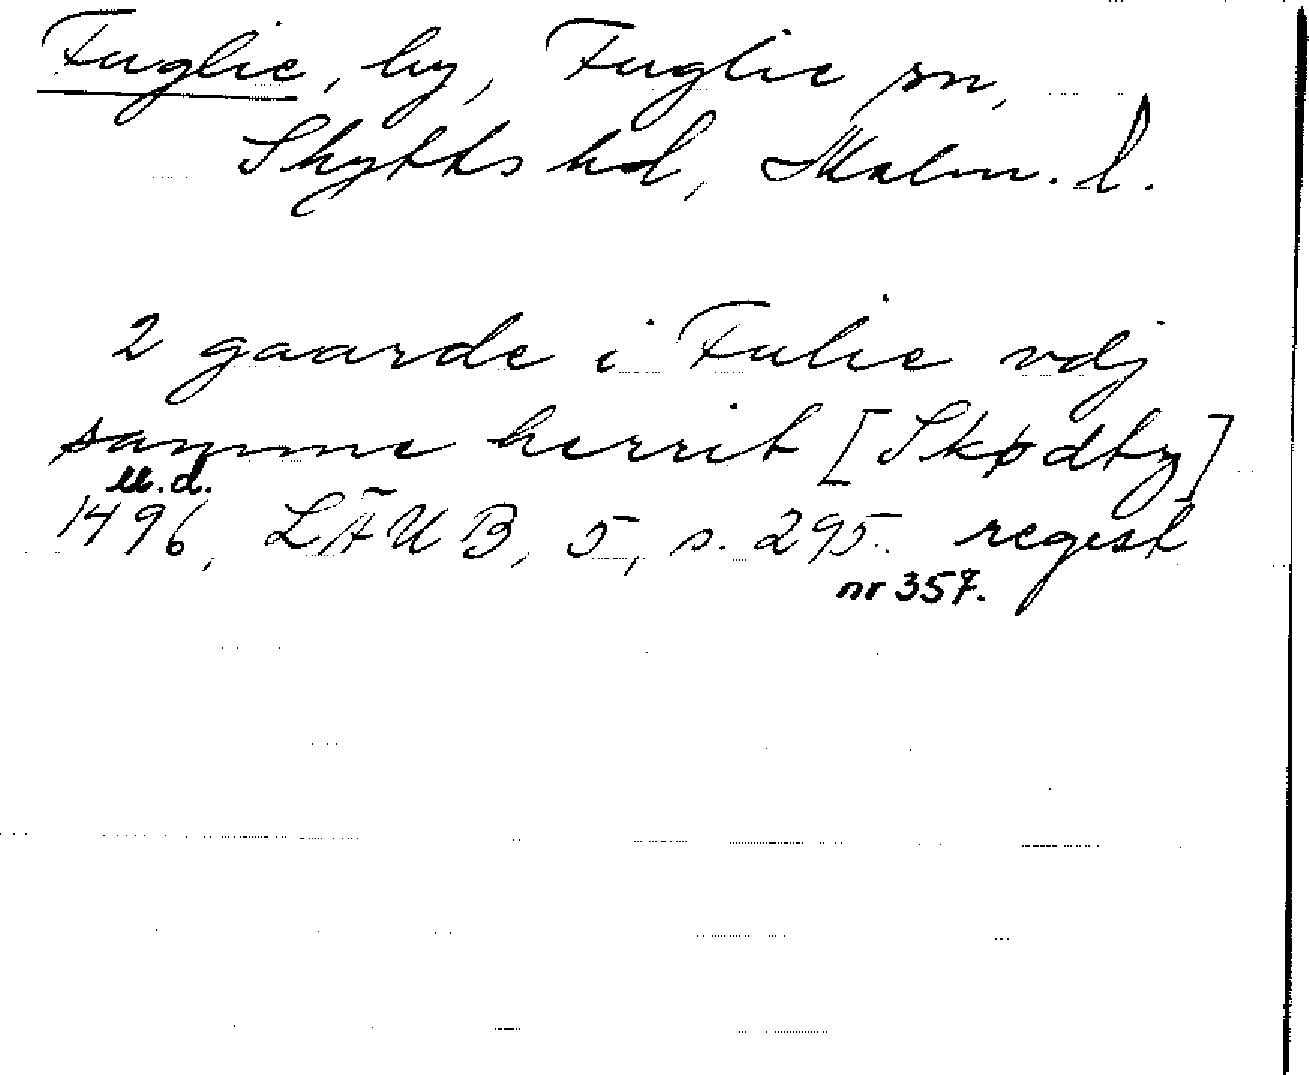 Fuglie, by, Fuglie sn,
Skytts hd, Malm. l.
2 gaarde i Fulie vdj
samme herrit [Skødtz]
u.d.
1496, LÄUB, 5, s. 295. regest
nr 357.